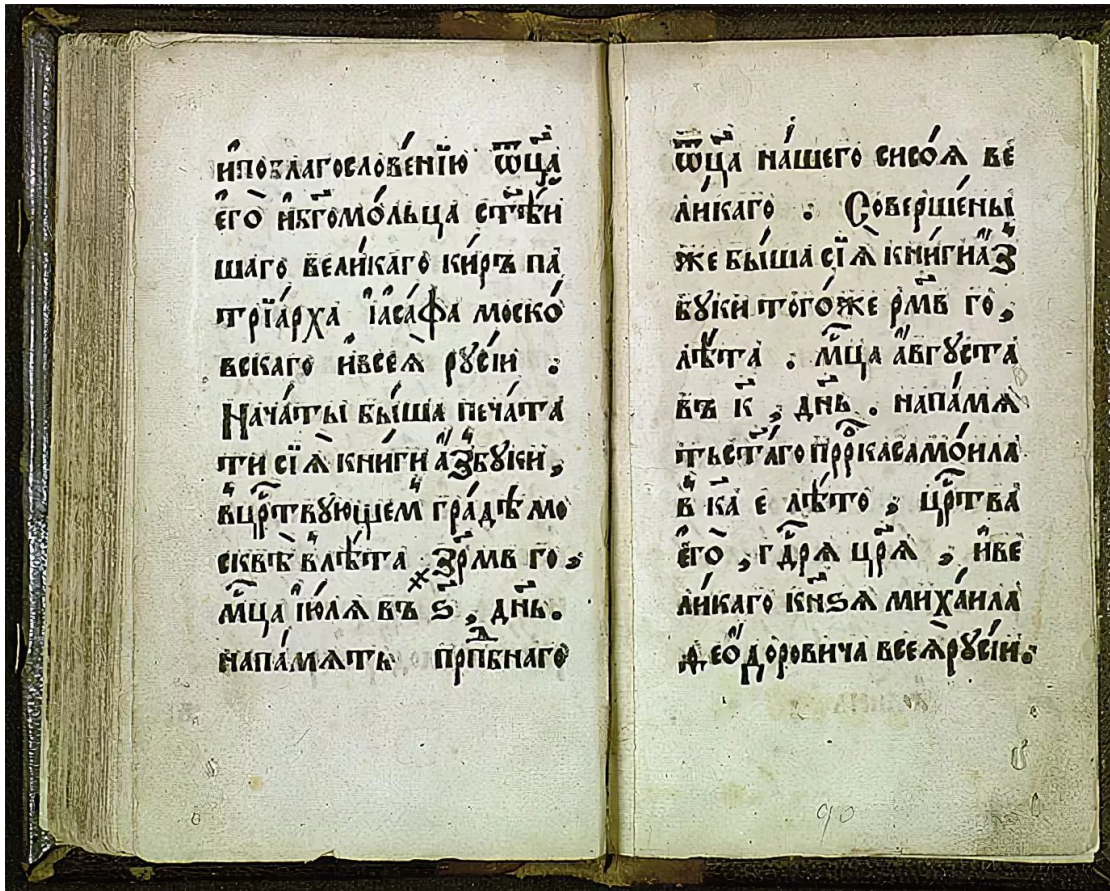 и҆поблагослове́нїю ѿц҃а
є҆го̀ и҆бг҃омо́льца ст҃ѣ́и
шаго вели́каго ки́ръ па
трїа́рха і҆аса́фа моско́
вскаго и҆всеѧ̀ рꙋсі́и :
Нача́ты бы́ша печа́та
ти сїѧ̀ кни́ги а҆збꙋки ,
вцр҃твꙋющем гра́дѣ мо
сквѣ̀ влѣ́та ҂зрмв го ,
мц҃а і҆ю́лѧ въ ѕ҃ , дн҃ь .
напа́мѧть прпⷣбнаго
ѿц҃а на́шего сисо́ѧ ве
ли́каго . Соверше́ны
же бы́ша сїѧ̀ кни́ги а҆з
бꙋки того́же рм҃в го ,
лѣ́та . мц҃а а҆́вгꙋста
въ к҃ , дн҃ь . напа́мѧ
тьст҃а́го прⷪ҇ркасамо́ила
в ка е лѣ́то , цр҃тва
є҆го̀ , гдⷭ҇рѧ цр҃ѧ , и҆ве
ли́каго кн҃ѕѧ миха́ила
ѳео́доровича всеѧ̀рꙋсі́и .
90